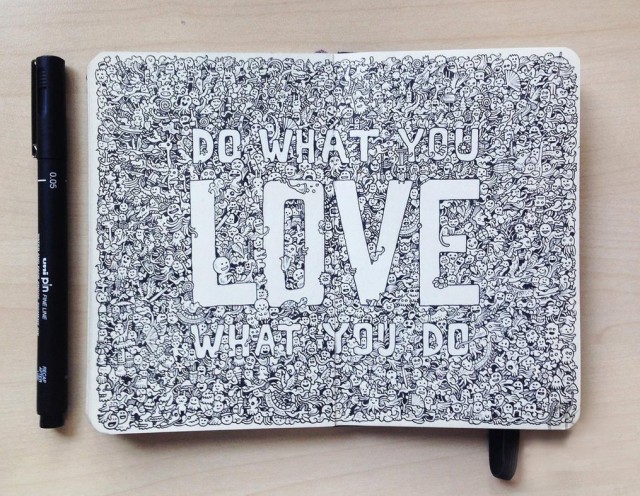 DO WHAT YOU
LOVE
WHAT YOU DO
0.05
uni pin FINE LINE